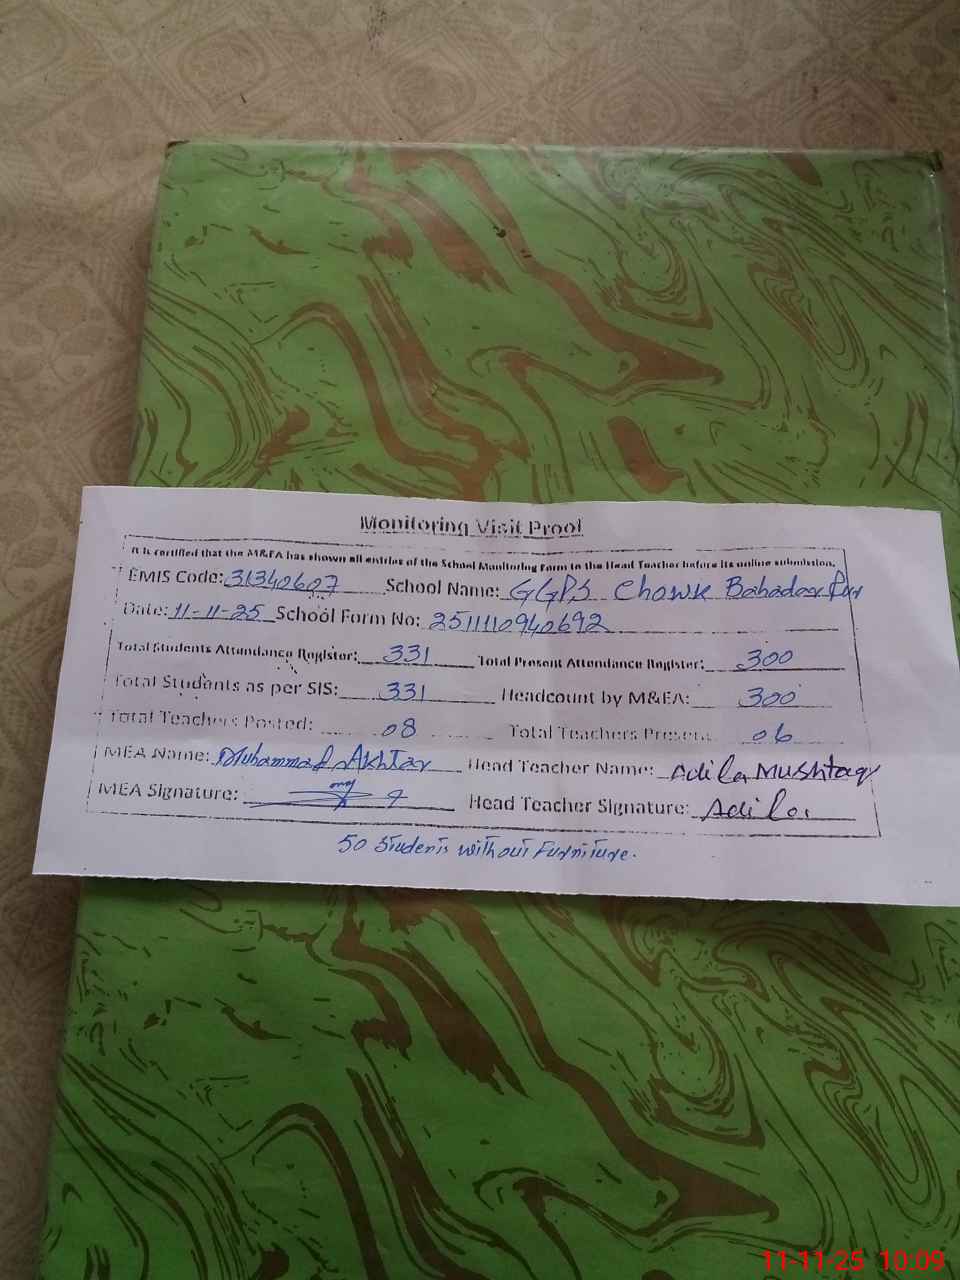 Monitoring Visit Proof
It is certified that the M&EA has shown all entries of the School Monitoring Form to the Head Teacher before its online submission.
EMIS Code: 31340607 School Name: GGPS Chowk Bahadar Pur
Date: 11-11-25 School Form No: 251111940692
Total Students Attendance Register: 331 Total Present Attendance Register: 300
Total Students as per SIS: 331 Headcount by M&EA: 300
Total Teachers Posted: 08 Total Teachers Present: 06
MEA Name: Muhammad Akhtar Head Teacher Name: Adila Mushtaq
MEA Signature: Head Teacher Signature: Adila
50 Students without Furniture.
11-11-25 10:09